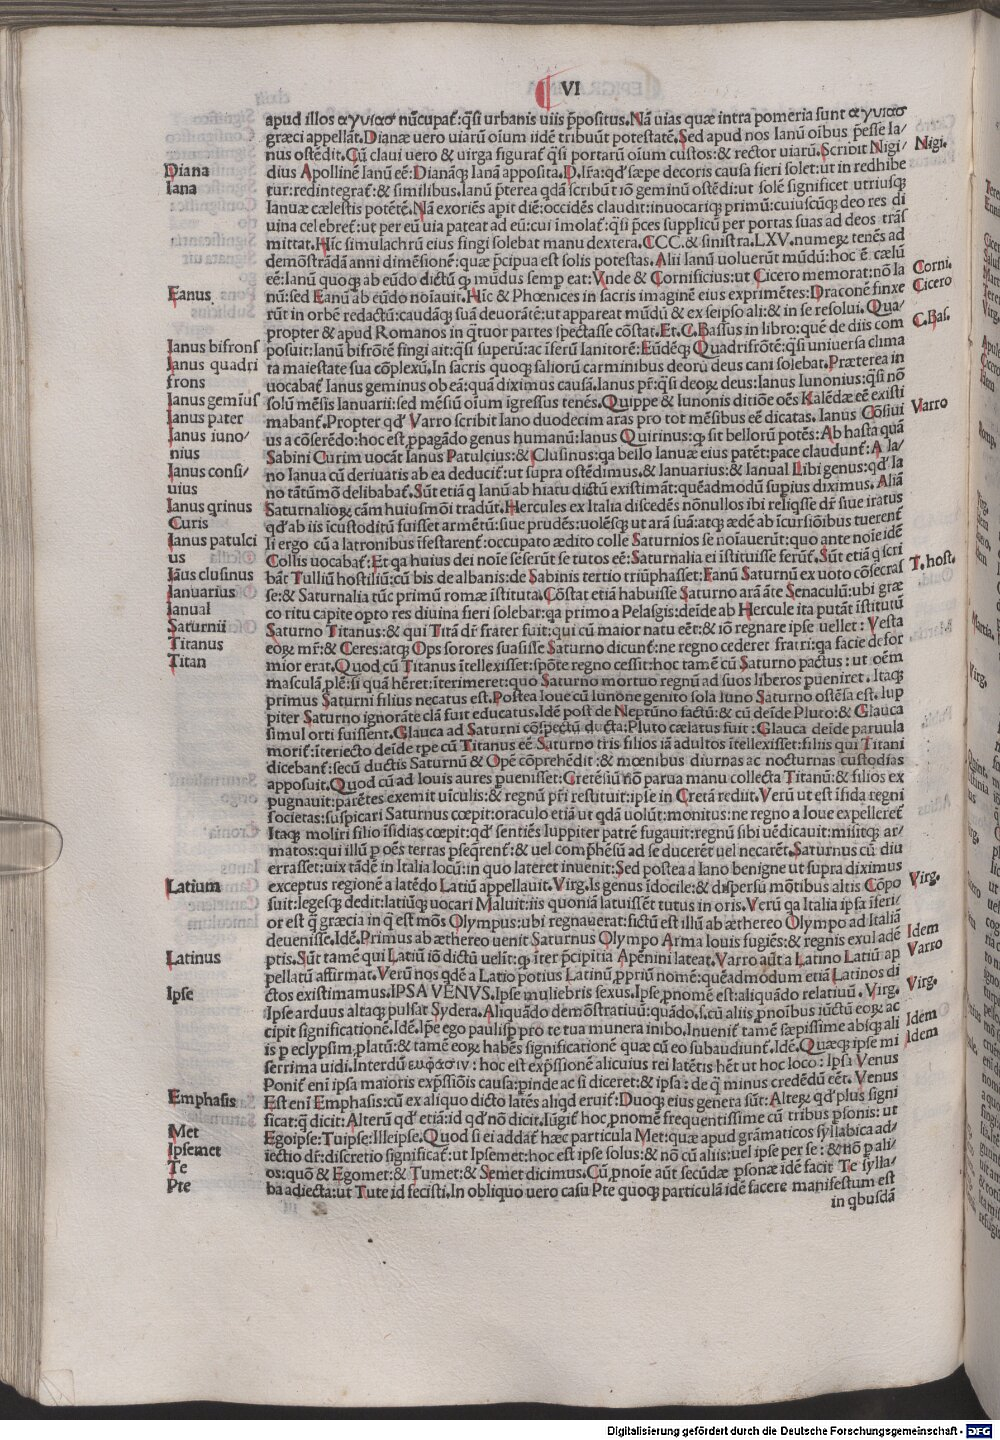 VI
apud illos αγνιασ nūcupat̄:q̄si urbanis uiis p̄positus.Nā uias quæ intra pomeria sunt αγνιασ
græci appellāt.Dianæ uero uiarū oīum iidē tribuūt potestatē.Sed apud nos Ianū oībus p̄esse la/
nus ostēdit.Cū claui uero & uirga figurat̄ q̄si portarū oīum custos:& rector uiarū.Scribit Nigi/
Nigi.
Diana
dius Apollinē Ianū eē:Dianāqꝫ Ianā apposita.D.lr̄a:qd̓ sæpe decoris causa fieri solet:ut in redhibe
Iana
tur:redintegrat̄:& similibus.Ianū p̄terea qdā scribūt iō geminū ostēdi:ut solē significet utriusqꝫ
Ianuæ cælestis potētē.Nā exoriēs apit diē:occidēs claudit:inuocariqꝫ primū:cuiuscūqꝫ deo res di
uina celebret̄:ut per eū uia pateat ad eū:cui īmolat̄:q̄si p̄ces supplicū per portas suas ad deos trās
mittat.Hīc simulachrū eius fingi solebat manu dextera.CCC.& sinistra.LXV.numeꝝ tenēs ad
demōstrādā anni dimēsionē:quæ p̄cipua est solis potestas.Alii Ianū uoluerūt mūdū:hoc ē cælū
eē:Ianū quoqꝫ ab eūdo dictū qꝫ mūdus semp eat:Vnde & Cornificius:ut Cicero memorat:nō Ia
Corni.
Eanus
nū:sed Eanū ab eūdo noīauit.Hīc & Phœnices in sacris imaginē eius exprimētes:Draconē finxe
Cicero
rūt in orbē redactū:caudāqꝫ suā deuorātē:ut appareat mūdū & ex seipso ali:& in se resolui.Qua/
propter & apud Romanos in q̄tuor partes spectasse cōstat.Et.C.Bassus in libro:quē de diis com
C.Bas.
Ianus bifrons
posuit:Ianū bifrōtē fingi ait:q̄si superū:ac īferū Ianitorē:Eūdēqꝫ Quadrifrōtē:q̄si uniuersa clima
Ianus quadri
ta maiestate sua cōplexū.In sacris quoqꝫ saliorū carminibus deorū deus cani solebat.Præterea in
frons
uocabat̄ Ianus geminus ob eā:quā diximus causā.Ianus pr̄:q̄si deoꝝ deus:Ianus Iunonius:q̄si nō
Ianus gemius
solū mēsis Ianuarii:sed mēsiū oīum īgressus tenēs.Quippe & Iunonis ditiōe oēs Kalēdæ eē existi
Ianus pater
mabant̄.Propter qd̓ Varro scribit Iano duodecim aras pro tot mēsibus eē dicatas. Ianus Cōsiui
Varro
Ianus iuno/
us a cōserēdo:hoc est p̱pagādo genus humanū:Ianus Quirinus:qꝫ sit bellorū potēs:Ab hasta quā
nius
Sabini Curim uocāt Ianus Patulcius:& Clusinus:qa bello Ianuæ eius patēt:pace claudunt̄:A Ia/
Ianus consi/
no Ianua cū deriuatis ab ea deducit̄:ut supra ostēdimus.& Ianuarius:& Ianual Libi genus:qd̓ Ia
uius
no tātūmō delibabat̄.Sūt etiā q Ianū ab hiatu dictū existimāt:quēadmodū supius diximus. Aliā
Ianus qrinus
Saturnalioꝝ cām huiusmōi tradūt.Hercules ex Italia discedēs nōnullos ibi reliqsse dr̄ siue iratus
Curis
qd̓ ab iis īcustoditū fuisset armētū:siue prudēs:uolēsqꝫ ut arā suā:atqꝫ ædē ab īcursiōibus tuerent̄
Ianus patulci
Ii ergo cū a latronibus īfestarent̄:occupato ædito colle Saturnios se noīauerūt:quo ante noīe idē
us
Collis uocabat̄:Et qa huius dei noīe seserūt se tutos eē:Saturnalia ei īstituisse ferūt̄.Sūt etiā q scri
Iāus clusinus
bāt Tulliū hostiliū:cū bis de albanis:de Sabinis tertio triūphasset:Fanū Saturnū ex uoto cōsecras
T.host.
Ianuarius
se:& Saturnalia tūc primū romæ īstituta.Cōstat etiā habuisse Saturno arā āte Senaculū:ubi græ
Ianual
co ritu capite opto res diuina fieri solebat:qa primo a Pelasgis:deīde ab Hercule ita putāt īstitutū
Saturnii
Saturno Titanus:& qui Titā dr̄ frater fuit:qui cū maior natu eēt:& iō regnare ipse uellet: Vesta
Titanus
eoꝝ mr̄:& Ceres:atqꝫ Ops sorores suasisse Saturno dicunt̄:ne regno cederet fratri:qa facie defor
Titan
mior erat.Quod cū Titanus ītellexisset:spōte regno cessit:hoc tamē cū Saturno pactus: ut oēm
masculā p̱lē:si quā hēret:īterimeret:quo Saturno mortuo regnū ad suos liberos pueniret. Itaqꝫ
primus Saturni filius necatus est.Postea Ioue cū Iunone genito sola Iuno Saturno ostēsa est.Iup
piter Saturno ignorāte clā fuit educatus.Idē post de Neptūno factū:& cū deīde Pluto:& Glauca
simul orti fuissent.Glauca ad Saturni cōspectū ducta:Pluto cælatus fuit:Glauca deīde paruula
morit̄:īteriecto deīde tpe cū Titanus eē Saturno tris filios iā adultos ītellexisset:filiis qui Titani
dicebant̄:secū ductis Saturnū & Opē cōprehēdit :& mœnibus diurnas ac nocturnas custodias
apposuit.Quod cū ad Iouis aures puenisset:Cretēsiū nō parua manu collecta Titanū:& filios ex
pugnauit:parētes exemit uīculis:& regnū pr̄i restituit:ipse in Cretā rediit.Verū ut est īfida regni
societas:suspicari Saturnus cœpit:oraculo etiā ut qdā uolūt:monitus:ne regno a Ioue expelleret̄
Itaqꝫ moliri filio īsidias cœpit:qd̓ sentiēs Iuppiter patrē fugauit:regnū sibi uēdicauit:misitqꝫ ar/
matos:qui illū p oēs terras pseqrent̄:& uel comp̄hēsū ad se ducerēt uel necarēt.Saturnus cū diu
errasset:uix tādē in Italia locū:in quo lateret inuenit:Sed postea a Iano benigne ut supra diximus
Latium
exceptus regionē a latēdo Latiū appellauit.Virg.Is genus īdocile:& dispersū mōtibus altis Cōpo
Virg.
suit:legesqꝫ dedit:latiūqꝫ uocari Maluit:iis quoniā latuissēt tutus in oris. Verū qa Italia ipsa īferi/
or est q̄ græcia in q̄ est mōs Olympus:ubi regnauerat:fictū est illū ab æthereo Olympo ad Italiā
deuenisse.Idē.Primus ab æthereo uenit Saturnus Olympo Arma Iouis fugiēs:& regnis exul adē
Idem
Latinus
ptis.Sūt tamē qui Latiū iō dictū uelīt:qꝫ īter p̄cipitia Apēnini lateat.Varro aūt a Latino Latiū ap
Varro
pellatū affirmat.Verū nos qdē a Latio potius Latinū p̱priū nomē:quēadmodum etiā Latinos di
Ipse
ctos existimamus.IPSA VENVS.Ipse muliebris sexus.Ipse p̱nomē est:aliquādo relatiuū. Virg.
Virg.
Ipse arduus altaqꝫ pulsat Sydera.Aliquādo demōstratiuū:quādo.s.cū aliis p̱noībus iūctū eoꝝ ac
cipit significationē.Idē.Ip̄e ego paulisp̱ pro te tua munera inibo.Inuenit̄ tamē sæpissime absqꝫ ali
Idem
is p eclypsim platū:& tamē eoꝝ habēs significationē quæ cū eo subaudiunt̄.Idē.Quæqꝫ ipse mi
Idem
serrima uidi.Interdū εμφασιν: hoc est exp̄ssionē alicuius rei latētis hēt ut hoc loco: Ipsa Venus
Ponit̄ enī ipsa maioris exp̄ssiōis causa:pinde ac si diceret:& ipsa: de q̄ minus credēdū cēt. Venus
Emphasis
Est enī Emphasis:cū ex aliquo dicto latēs aliqd eruit̄:Duoqꝫ eius genera sūt:Alteꝝ qd̓ plus signi
ficat:q̄ dicit:Alterū qd̓ etiā:id qd̓ nō dicit.Iūgit̄ hoc p̱nomē frequentissime cū tribus psonis: ut
Met
Egoipse:Tuipse:Illeipse.Quod si ei addat̄ hæc particula Met:quæ apud grāmaticos syllabica ad/
Ipsemet
iectio dr̄:discretio significat̄:ut Ipsemet:hoc est ipse solus:& nō cū aliis:uel ipse per se: & nō p ali/
Te
os:quō & Egomet:& Tumet:& Semet dicimus.Cū p̱noīe aūt secūdæ psonæ idē facit Te sylla/
Pte
ba adiecta:ut Tute id fecisti.In obliquo uero casu Pte quoqꝫ particulā idē facere manifestum est
in qbusdā
Digitalisierung gefördert durch die Deutsche Forschungsgemeinschaft - DFG